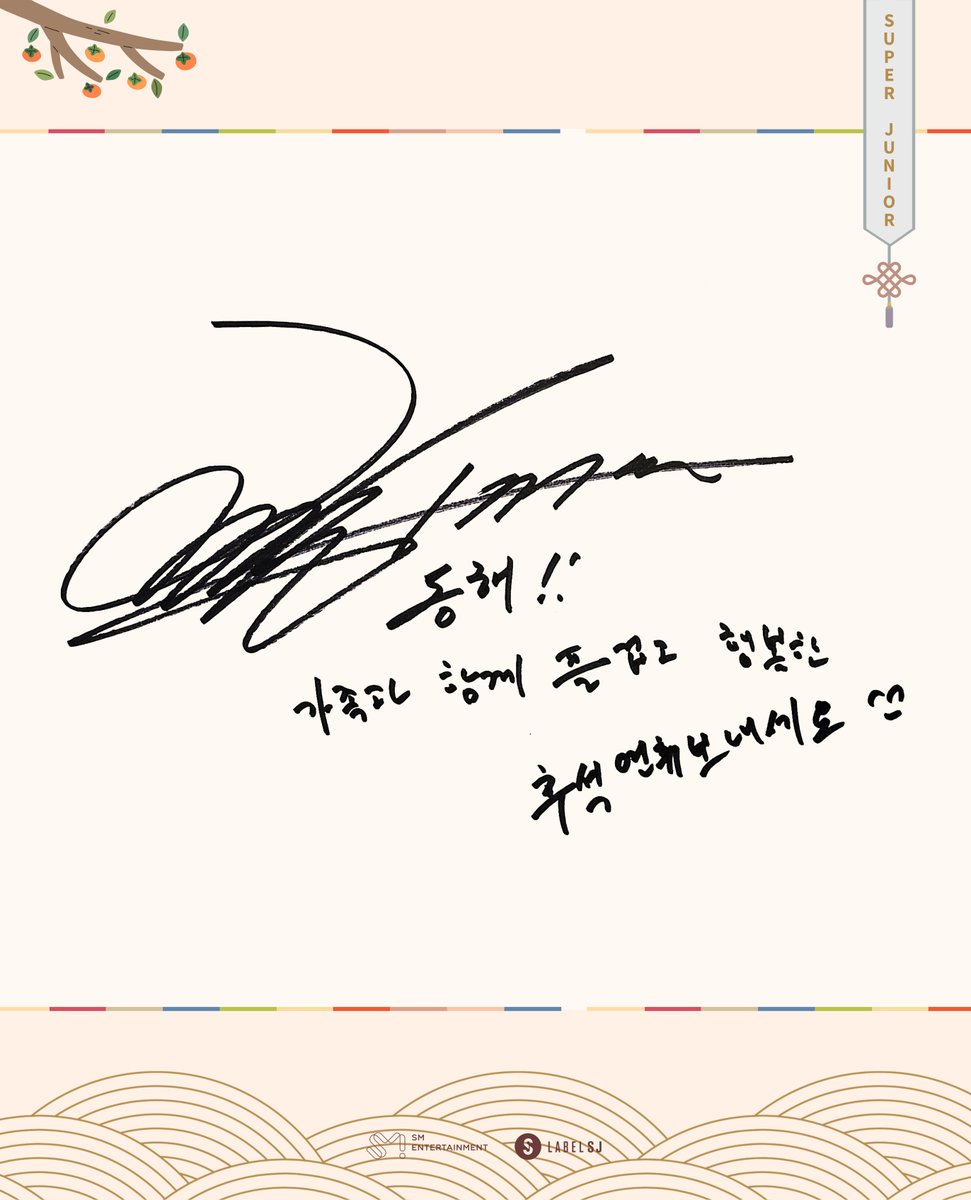 SUPER JUNIOR
동해!!
가족과 함께 즐겁고 행복한
추석 연휴 보내세요 ^^
SM
ENTERTAINMENT
LABEL SJ